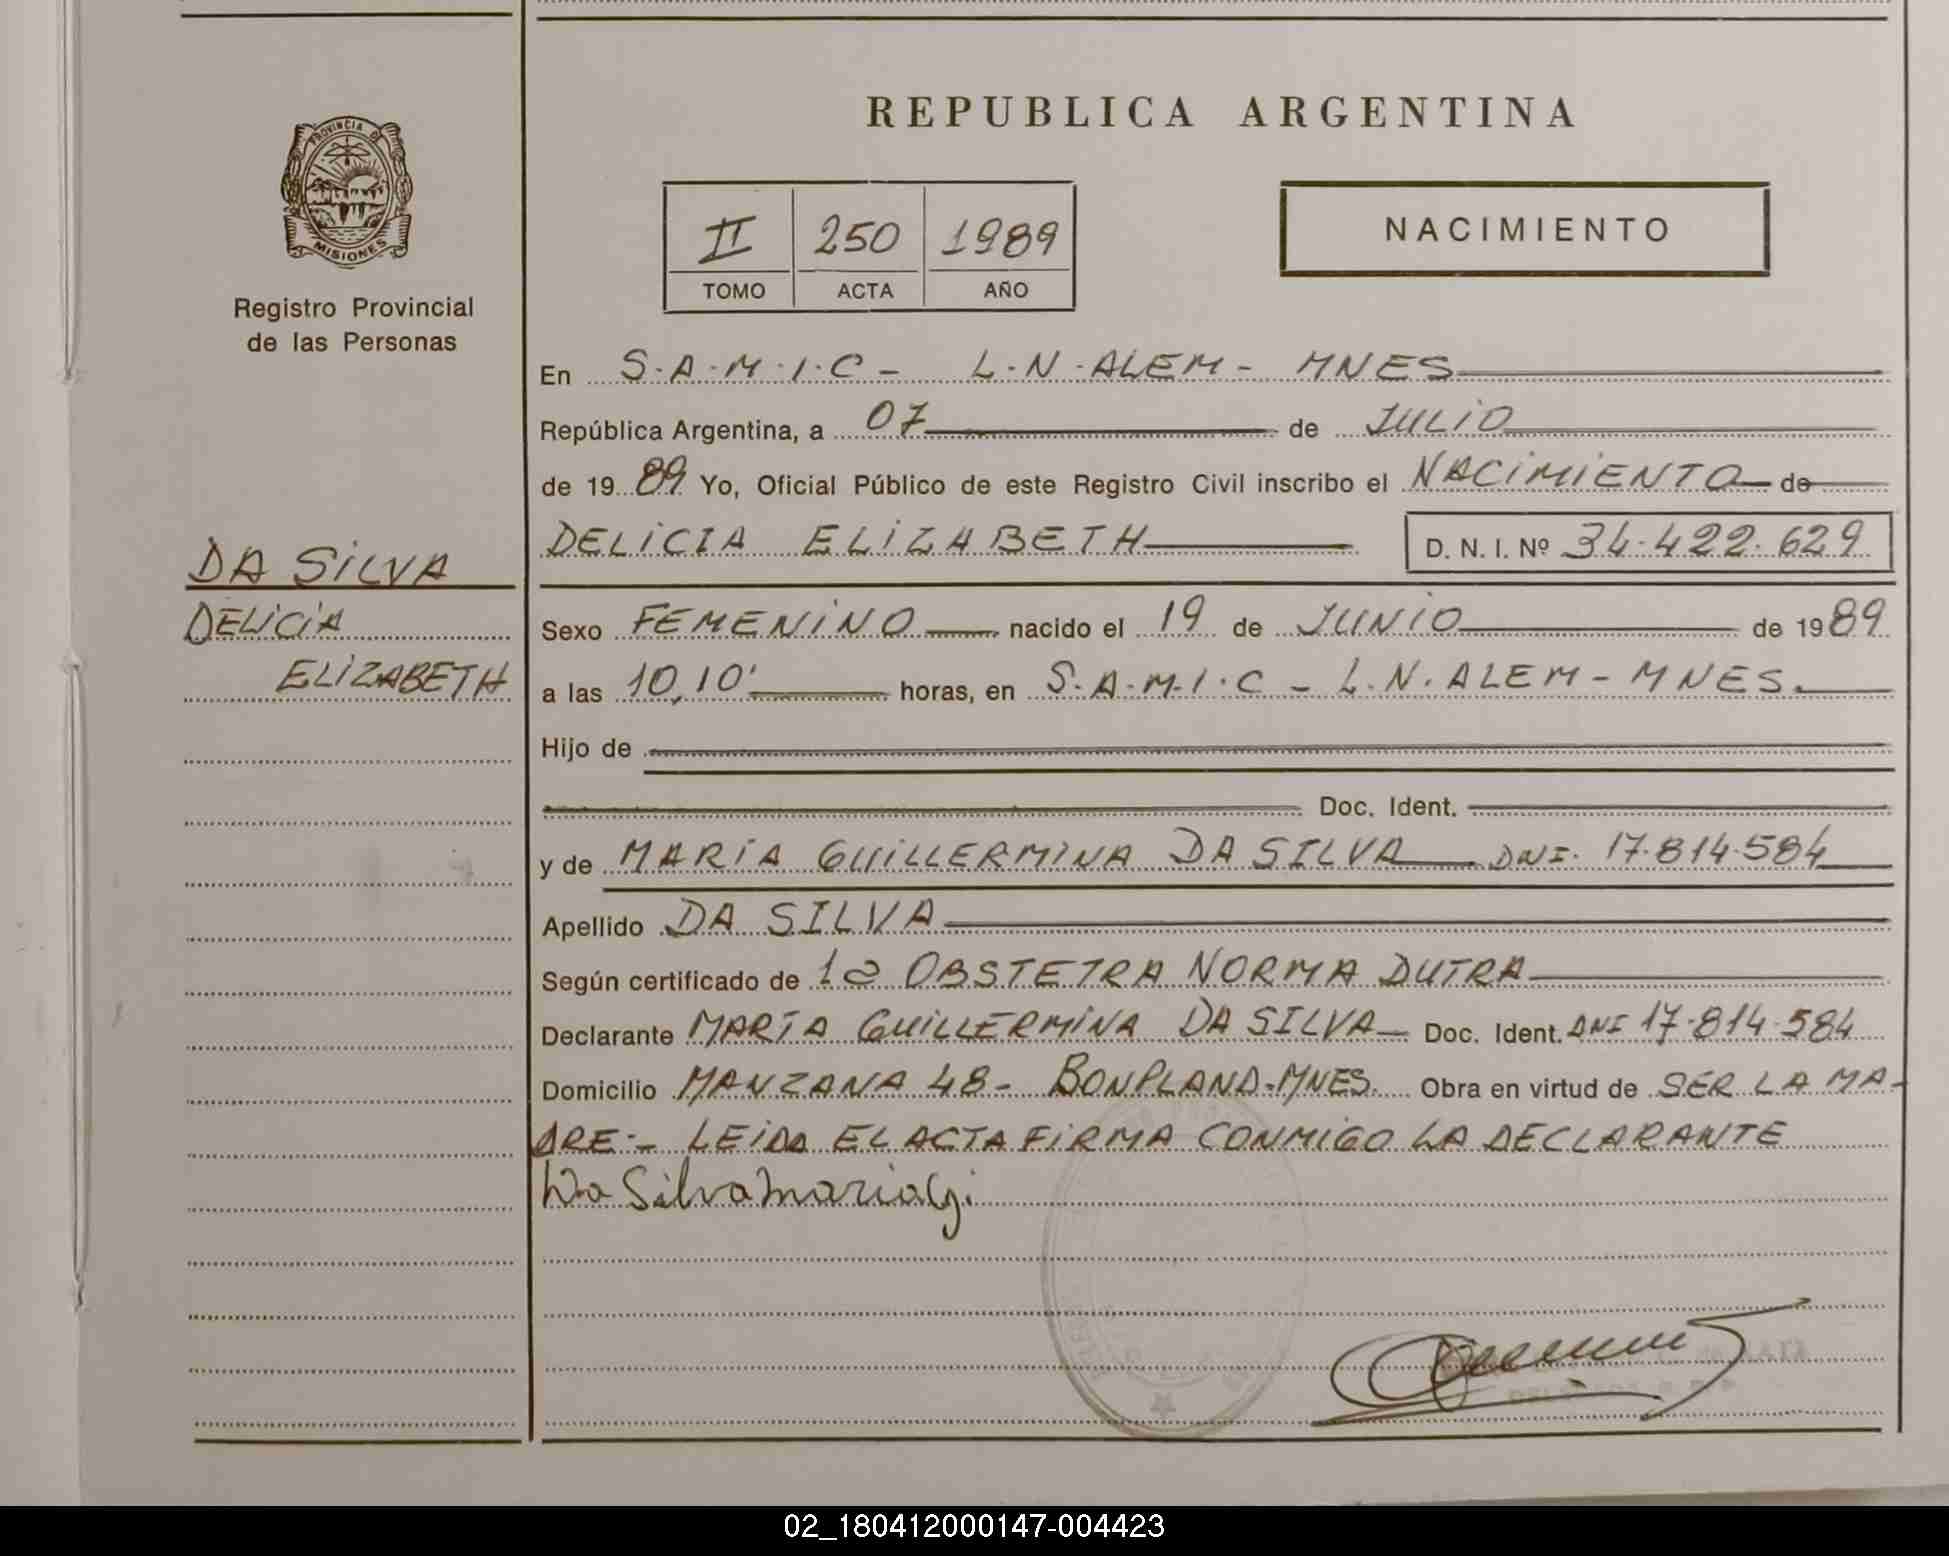 PROVINCIA D
MISIONES
Registro Provincial
de las Personas
DA SILVA
DELICIA
ELIZABETH
REPUBLICA ARGENTINA
II 250 1989
TOMO ACTA AÑO
NACIMIENTO
En S.A.M.I.C - L.N.ALEM - MNES
República Argentina, a 07 de JULIO
de 1989 Yo, Oficial Público de este Registro Civil inscribo el NACIMIENTO de
DELICIA ELIZABETH D. N. I. Nº 34.422.629
Sexo FEMENINO nacido el 19 de JUNIO de 1989
a las 10,10' horas, en S.A.M.I.C - L.N.ALEM - MNES.
Hijo de
Doc. Ident.
y de MARIA GUILLERMINA DA SILVA DNI. 17.814.584
Apellido DA SILVA
Según certificado de la OBSTETRA NORMA DUTRA
Declarante MARIA GUILLERMINA DA SILVA Doc. Ident. DNI 17.814.584
Domicilio MANZANA 48 - BONPLAND-MNES. Obra en virtud de SER LA MA-
DRE.- LEIDA EL ACTA FIRMA CONMIGO LA DECLARANTE
Da Silva maria G.
02_180412000147-004423